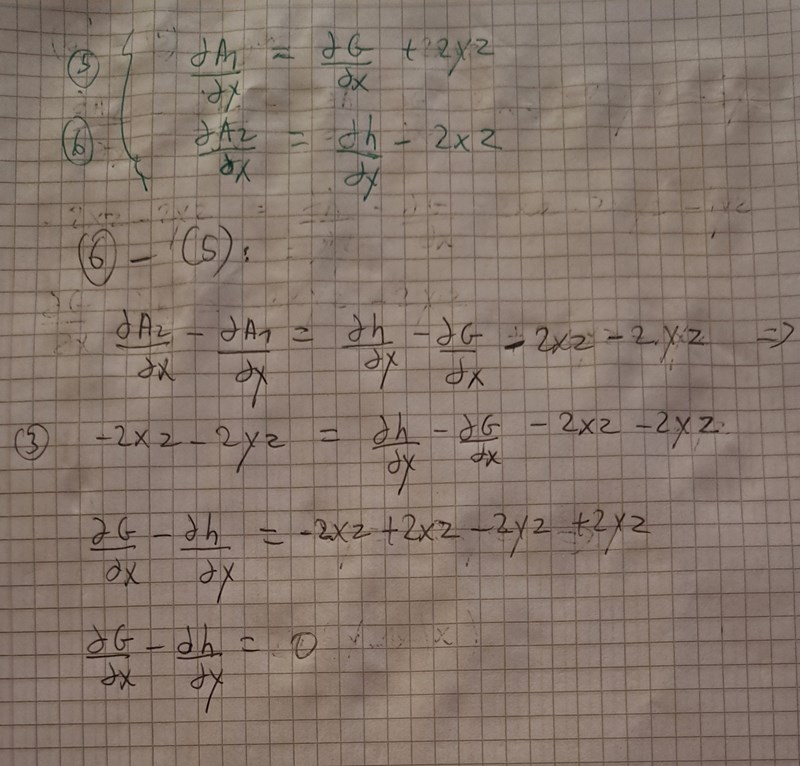 ⑤ { ∂A₁/∂y = ∂G/∂x + 2yz
⑥ ∂A₂/∂x = ∂h/∂y - 2xz
⑥ - (5):
∂A₂/∂x - ∂A₁/∂y = ∂h/∂y - ∂G/∂x - 2xz - 2yz =>
③ -2xz - 2yz = ∂h/∂y - ∂G/∂x - 2xz - 2yz
∂G/∂x - ∂h/∂y = -2xz + 2xz - 2yz + 2yz
∂G/∂x - ∂h/∂y = 0